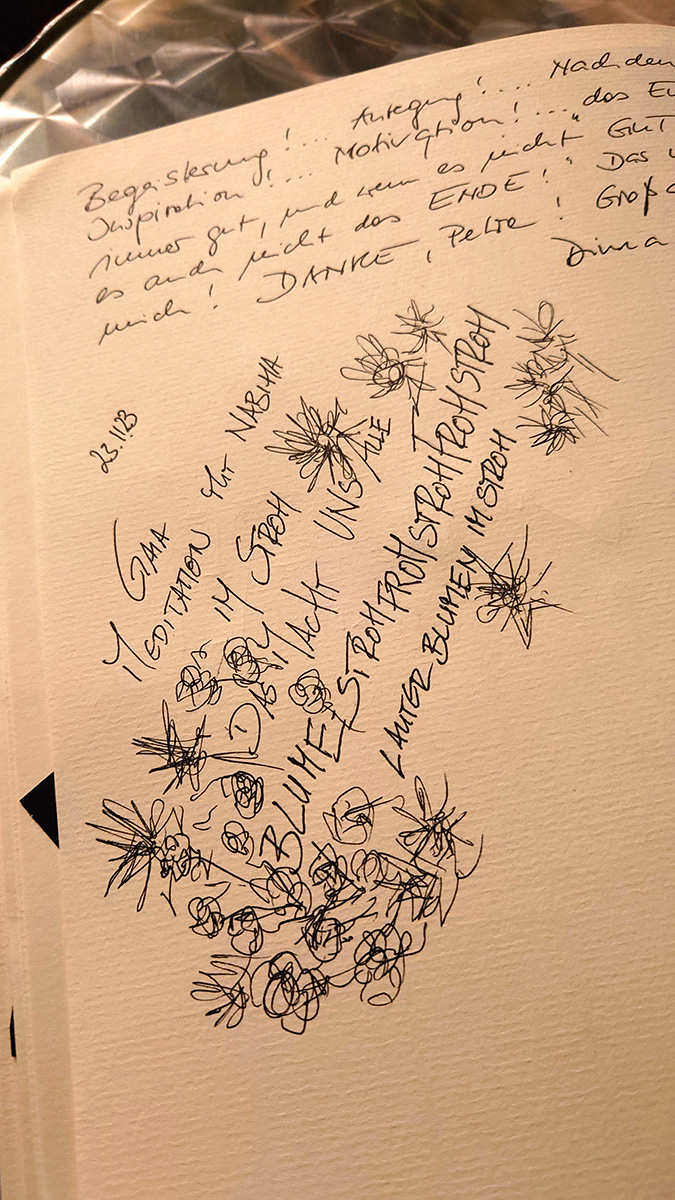 Begeisterung! ... Anregung! ... Nachdem
Inspiration! ... Motivation! ... das
immer gut, und wenn es nicht "GUT
es auch nicht das ENDE!" Das
mich! DANKE, Petra! Groß
23.11.23
GAIA
MEDITATION MIT NABIHA
IM STROH
DAS MACHT UNS ALLE
BLUMEN STROH FROH STROH FROH STROH
LAUTER BLUMEN IM STROH